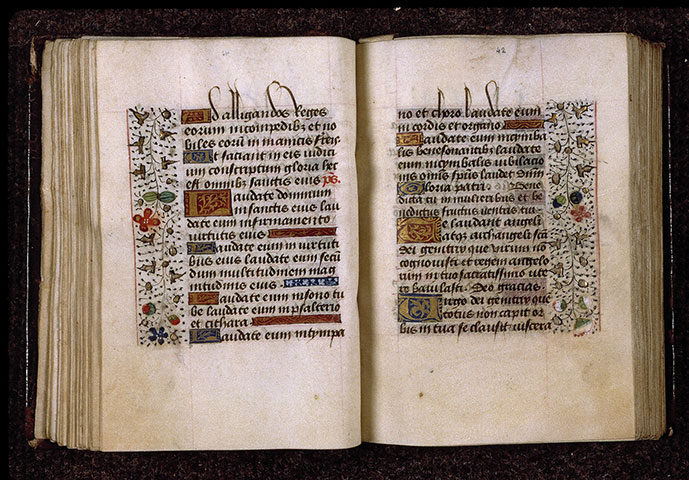 Ad alligandos reges
eorum in compedibȝ et no
biles eorū in manicis ferreis
Ut faciant in eis iudici
um conscriptum gloria hec
est omnibȝ sanctis eius ps.
Laudate dominum
in sanctis eius lau
date eum in firmamento
virtutis eius
Laudate eum in virtuti
bus eius laudate eum secū
dum multitudinem mag
nitudinis eius .
Laudate eum in sono tu
be laudate eum in psalterio
et cithara
Laudate eum in tympa
42
no et choro laudate eum
in cordis et organo
Laudate eum in cimba
lis benesonantibus laudate
eum in cymbalis iubilacio
nis omis sp̄us laudet dnm
Gloria patri. Bene
dicta tu in mulieribus et be
nedictus fructus ventris tui
Te laudant angeli
atqȝ archangeli scā
dei genitrix que virum nō
cognouisti et regem angelo
rum in tuo sacratissimo vte
ro baiulasti. Deo gracias.
Uirgo dei genitrix que
totus non capit or
bis in tua se clausit viscera